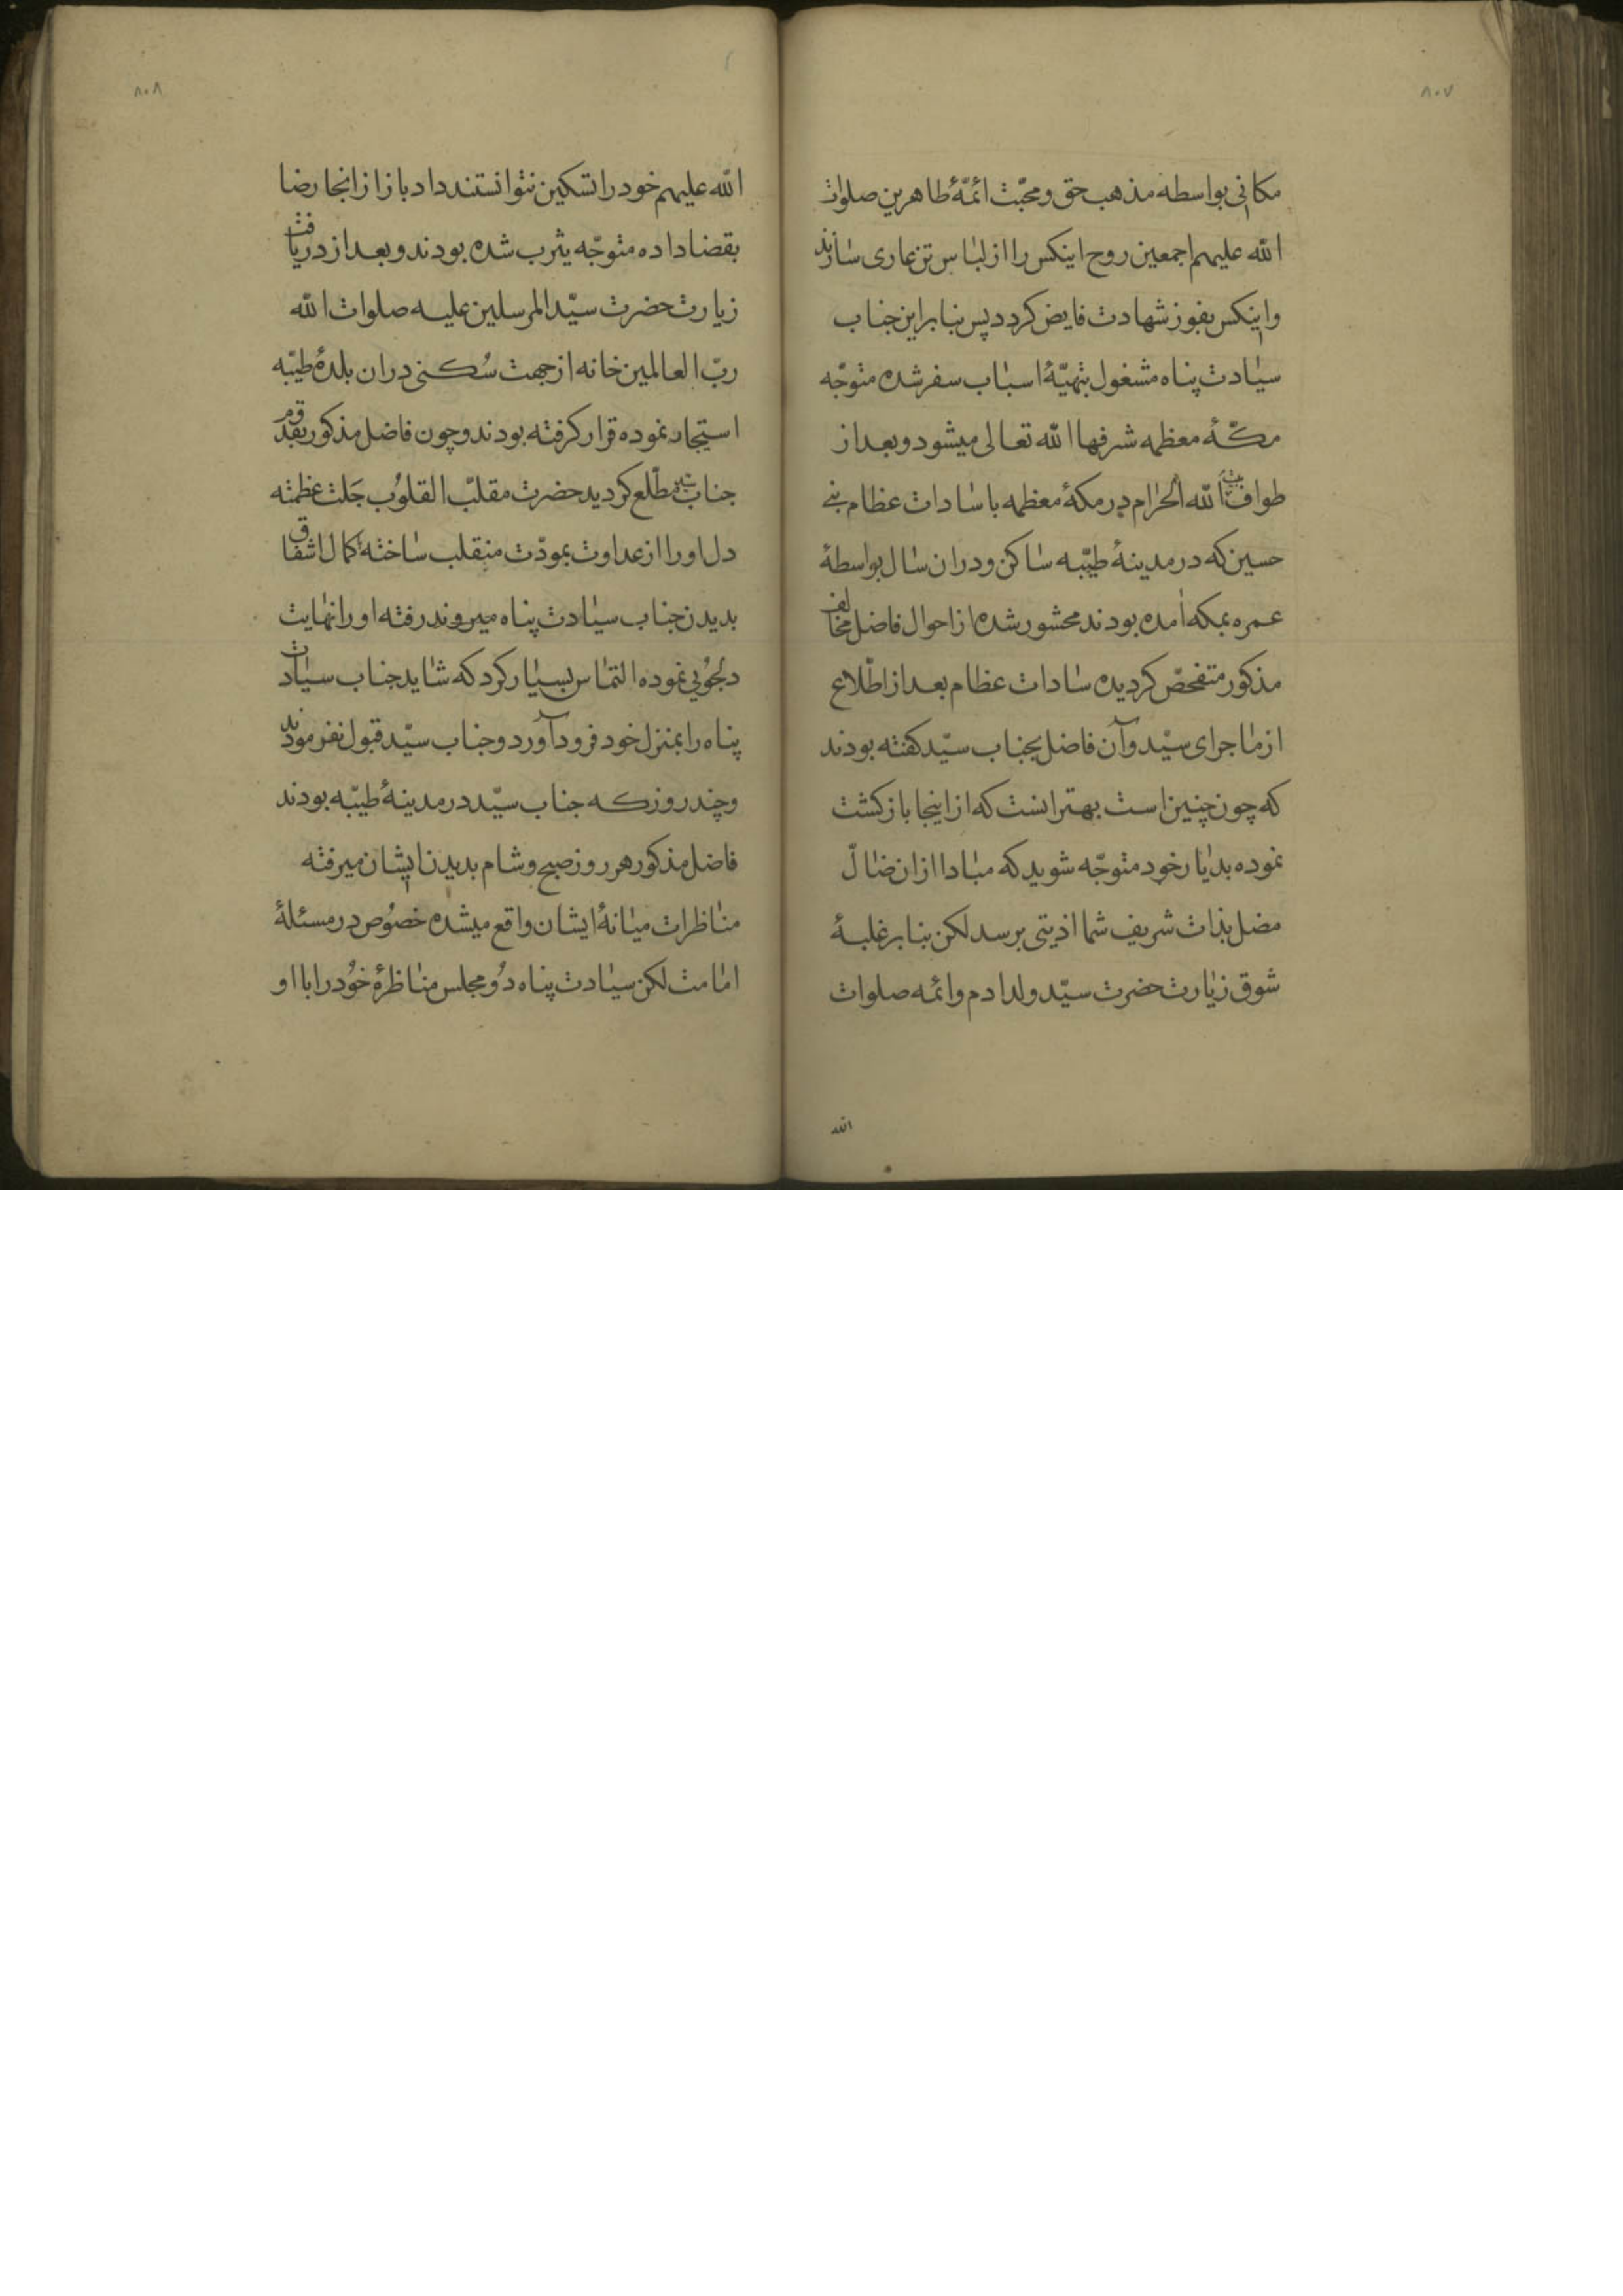 ۸۰۷
مکانی بواسطه مذهب حق و محبّت ائمّهٔ طاهرین صلوات
الله علیهم اجمعین روح اینکس را از لباس تن عاری سازند
و اینکس بفوز شهادت فایض کردد پس بنابراین جناب
سیادت پناه مشغول بتهیّهٔ اسباب سفر شده متوجّه
مکّهٔ معظمه شرفها الله تعالی میشود و بعد از
طواف بیت الله الحرام در مکهٔ معظمه با سادات عظام بنی
حسین که در مدینهٔ طیّبه ساکن و در ان سال بواسطهٔ
عمره بمکه امده بودند محشور شده از احوال فاضل مخالف
مذکور متفحصّ کردیده سادات عظام بعد از اطّلاع
از ماجرای سیّد و آن فاضل بجناب سیّد کفته بودند
که چون چنین است بهتر انست که از اینجا بازکشت
نموده بدیار خود متوجّه شوید که مبادا از ان ضالّ
مضل بذات شریف شما اذیتی برسد لکن بنابر غلبهٔ
شوق زیارت حضرت سیّد ولد ادم و ائمه صلوات
الله
۸۰۸
الله علیهم خود را تسکین نتوانستند داد باز از انجا رضا
بقضا داده متوجّه یثرب شده بودند و بعد از دریافت
زیارت حضرت سیّد المرسلین علیه صلوات الله
ربّ العالمین خانه از جهت سُکنی در ان بلدهٔ طیّبه
استیجار نموده قرار کرفته بودند و چون فاضل مذکور بقدوم
جناب سید مطّلع کردید حضرت مقلبّ القلوُب جَلت عظمته
دل او را از عداوت بمودّت منقلب ساخته بکمال اشفاق
بدیدن جناب سیادت پناه میروند رفته او را نهایت
دلجوُیی نموده التماس بسیار کرد که شاید جناب سیادت
پناه را بمنزل خود فرود آورد و جناب سیّد قبول نفرمودند
و چند روز که جناب سیّد در مدینهٔ طیّبه بودند
فاضل مذکور هر روز صبح و شام بدیدن ایشان میرفته
مناظرات میانهٔ ایشان واقع میشده خصُوص در مسئلهٔ
امامت لکن سیادت پناه دوُ مجلس مناظرهٔ خوُد را با او